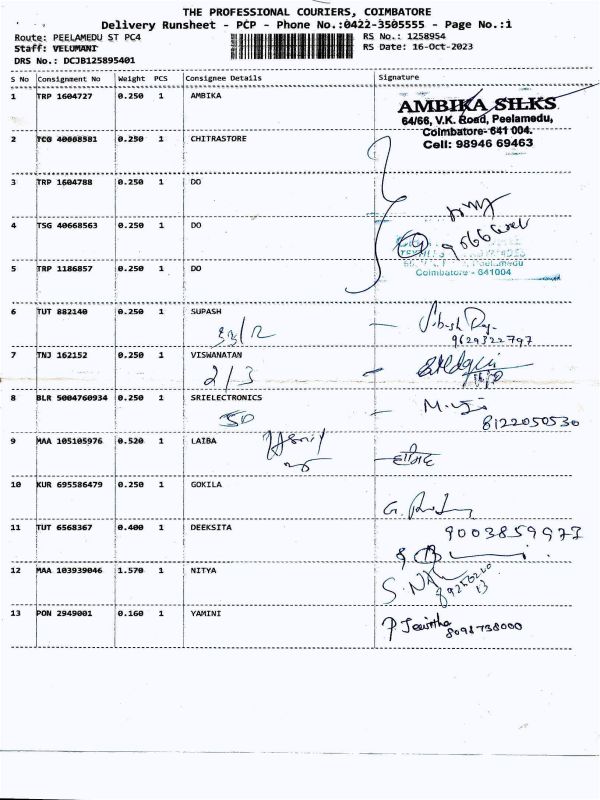 THE PROFESSIONAL COURIERS, COIMBATORE
Delivery Runsheet - PCP - Phone No.:0422-3505555 - Page No.:1
Route: PEELAMEDU ST PC4 RS No.: 1258954
Staff: VELUMANI RS Date: 16-Oct-2023
DRS No.: DCJB125895401
S No Consignment No Weight PCS Consignee Details Signature
1 TRP 1604727 0.250 1 AMBIKA
AMBIKA SILKS
64/66, V.K. Road, Peelamedu,
Coimbatore- 641 004.
Cell: 98946 69463
2 TCG 40668581 0.250 1 CHITRASTORE
3 TRP 1604788 0.250 1 DO
4 TSG 40668563 0.250 1 DO
5 TRP 1186857 0.250 1 DO
Coimbatore - 641004
6 TUT 882140 0.250 1 SUPASH
33/2
9629322797
7 TNJ 162152 0.250 1 VISWANATAN
2/3
8 BLR 5004760934 0.250 1 SRIELECTRONICS
50
8122050530
9 MAA 105105976 0.520 1 LAIBA
10 KUR 695586479 0.250 1 GOKILA
11 TUT 6568367 0.400 1 DEEKSITA
9003859973
12 MAA 103939046 1.570 1 NITYA
13 PON 2949001 0.160 1 YAMINI
8098738000